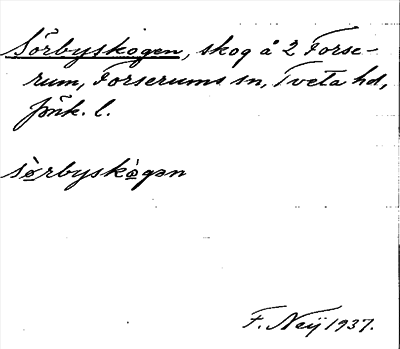 Sörbyskogen, skog å 2 Forse-
rum, Forserums sn, Tveta hd,
Jönk. l.
sò̤rbyskò̤gən
F. Neij 1937.